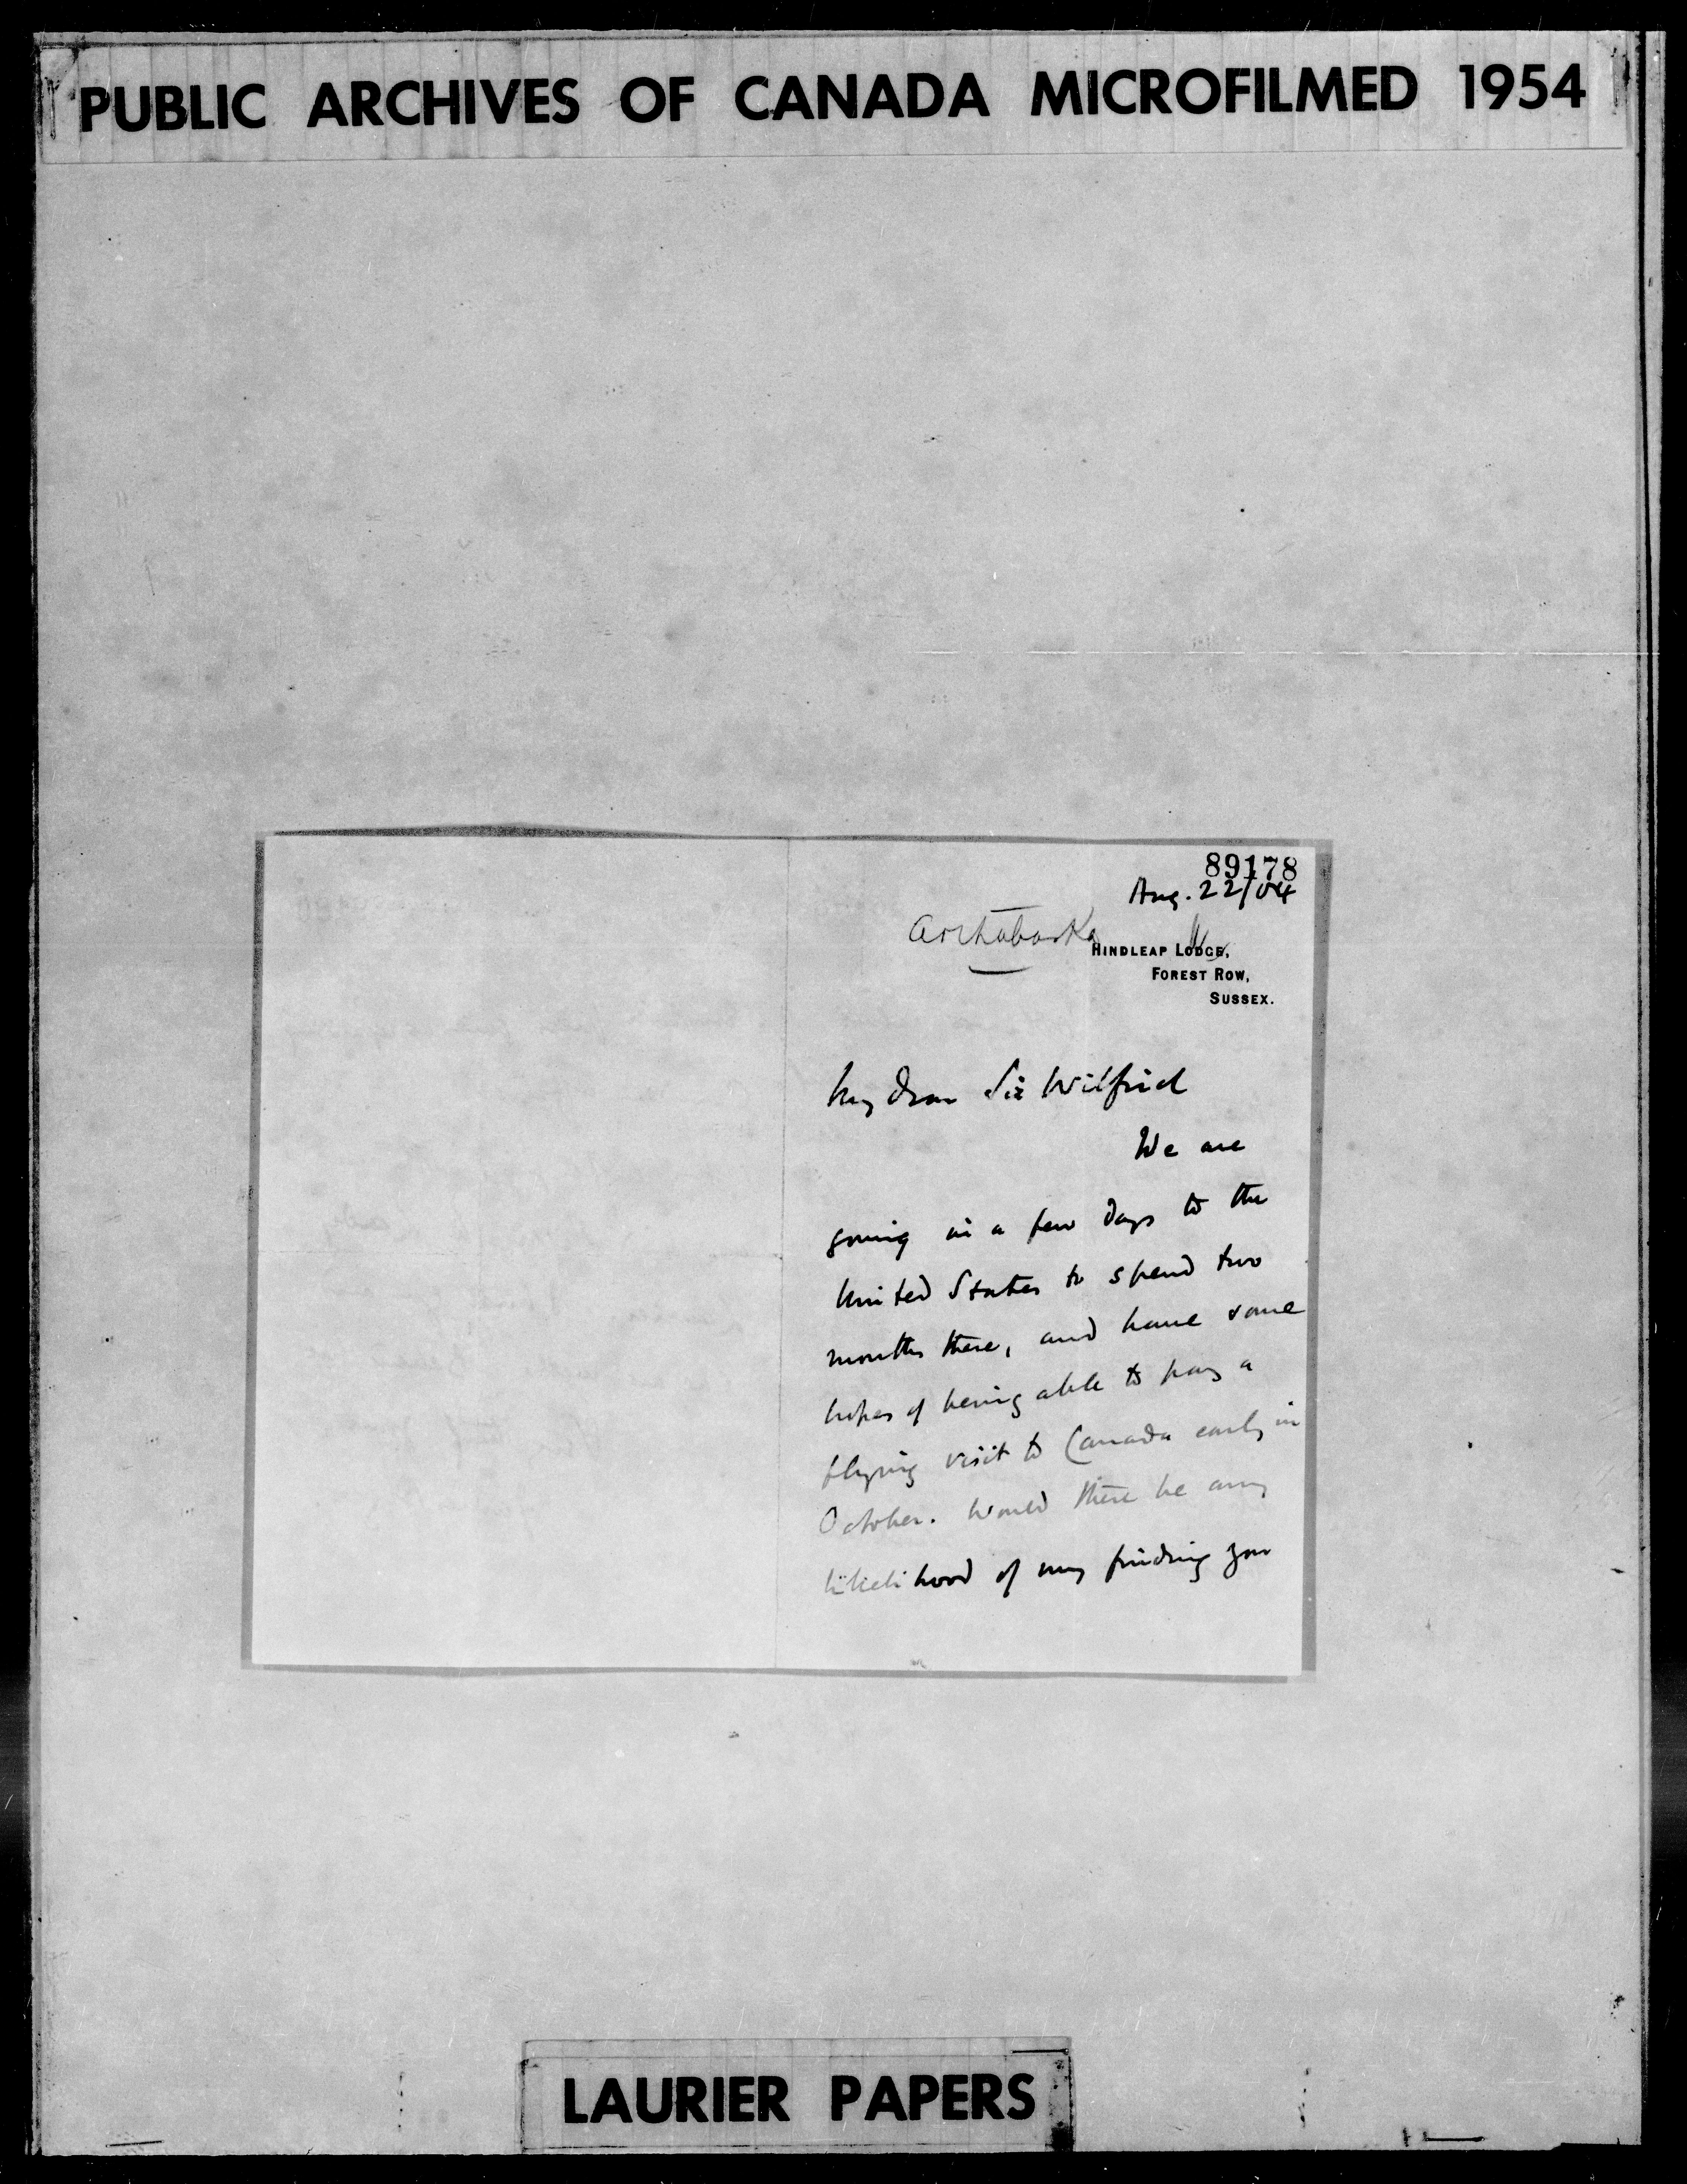 PUBLIC ARCHIVES OF CANADA MICROFILMED 1954
89178
Aug. 22/04
Arthabaska
HINDLEAP LODGE,
FOREST ROW,
SUSSEX.
My dear Sir Wilfrid
We are
going in a few days to the
United States to spend two
months there, and have some
hopes of being able to pay a
flying visit to Canada early in
October. Would there be any
likelihood of my finding you
LAURIER PAPERS